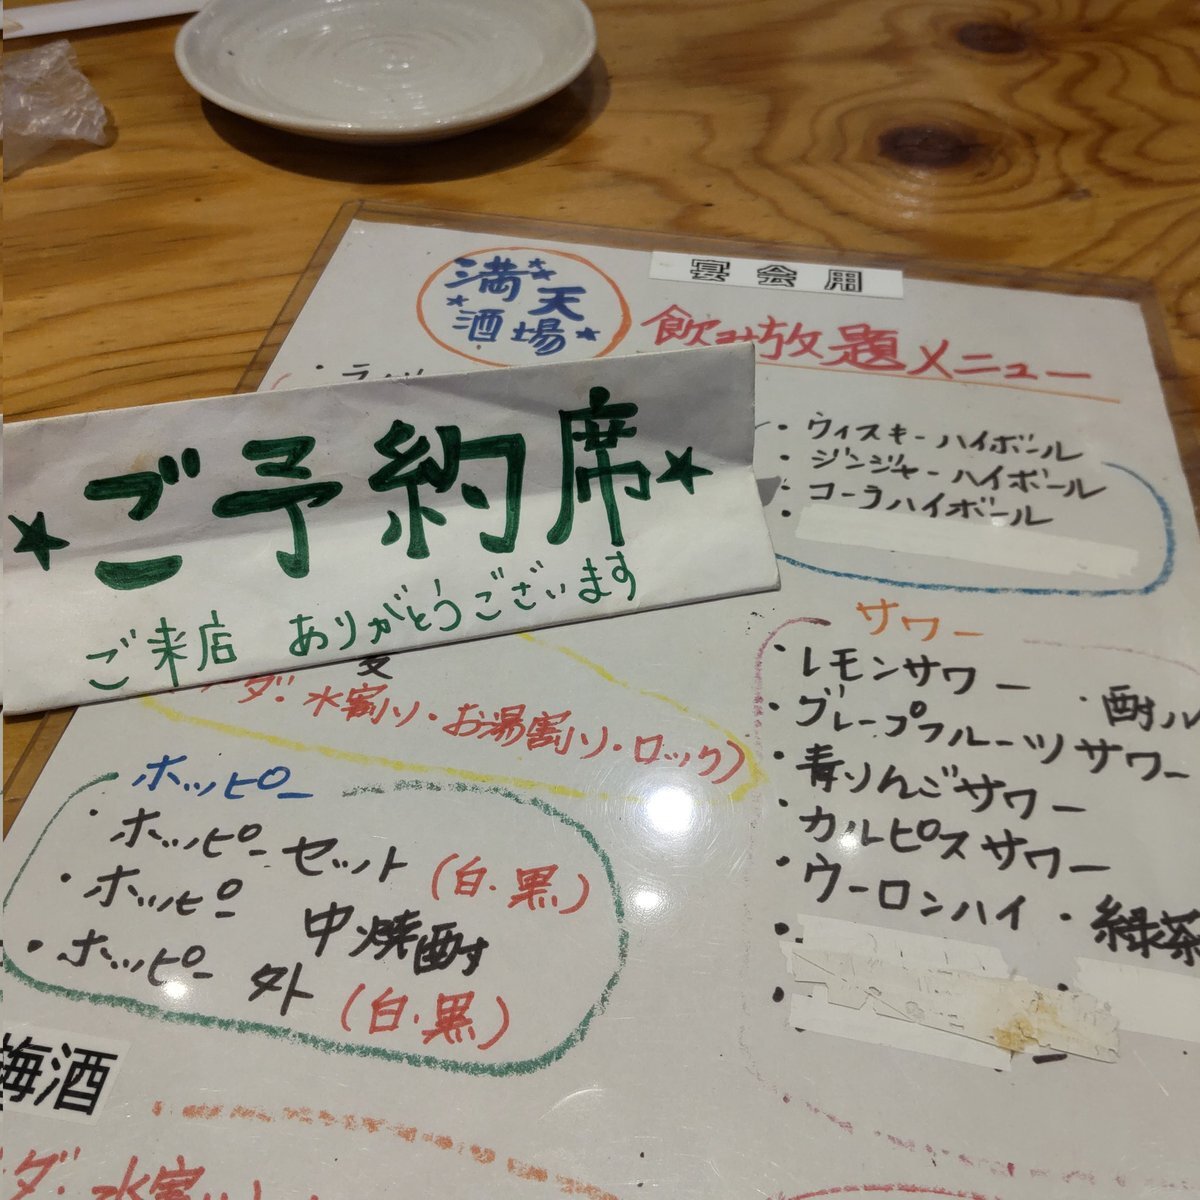 満天
酒場
宴会用
飲み放題メニュー
★ご予約席★
ご来店 ありがとうございます
・ウィスキーハイボール
・ジンジャーハイボール
・コーラハイボール
サワー
・レモンサワー
・グレープフルーツサワー
・青りんごサワー
・カルピスサワー
・ウーロンハイ ・緑茶
麦
ダ・水割り・お湯割り・ロック)
ホッピー
・ホッピーセット (白・黒)
・ホッピー 中焼酎
・ホッピー 外 (白・黒)
梅酒
ダ・水割り・